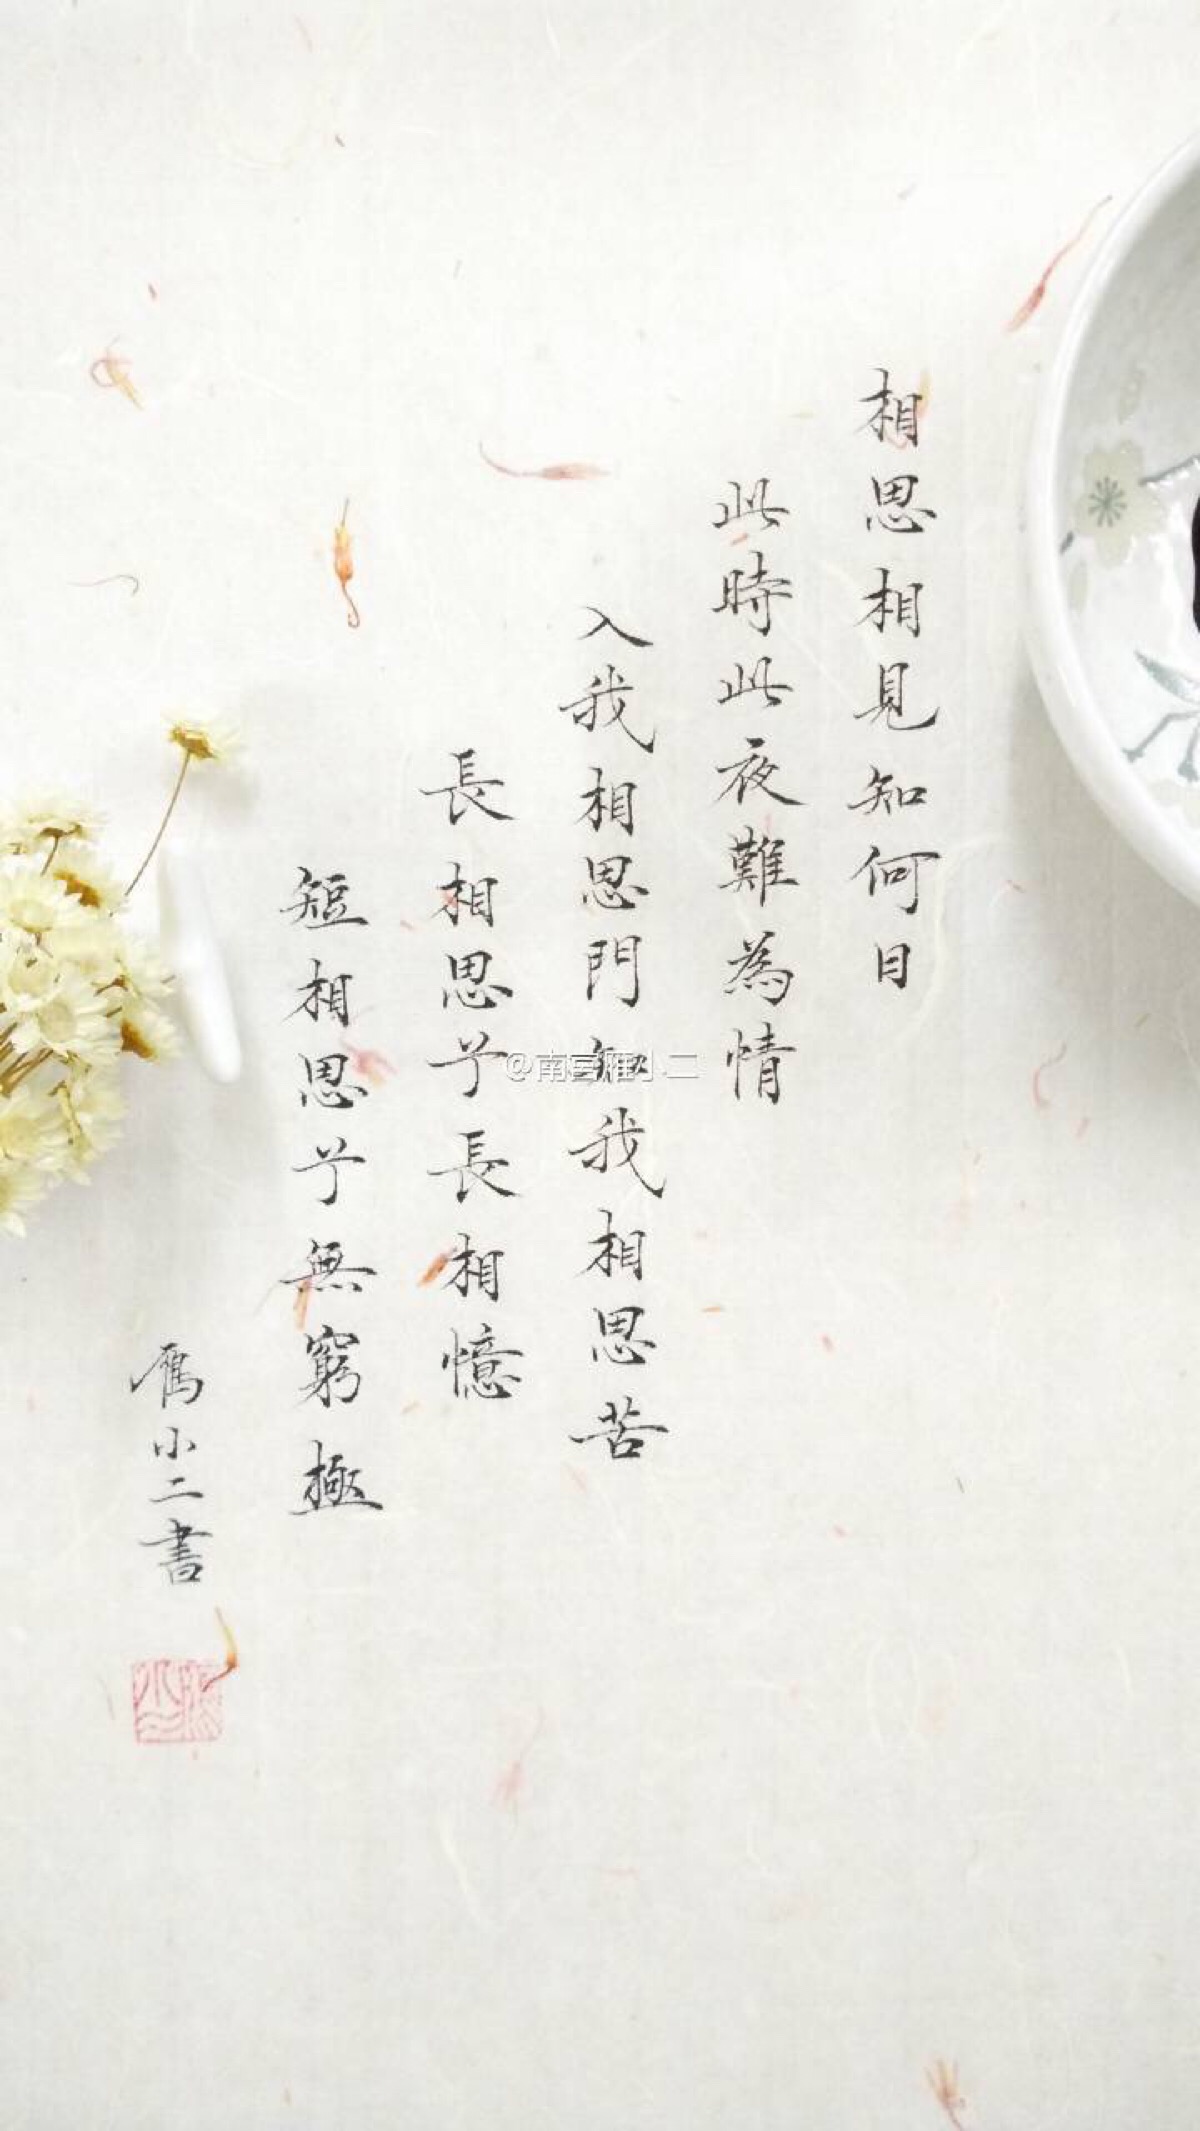 相思相見知何日
此時此夜難為情
入我相思門知我相思苦
長相思兮長相憶
短相思兮無窮極
雁小二書
@南宫雁小二